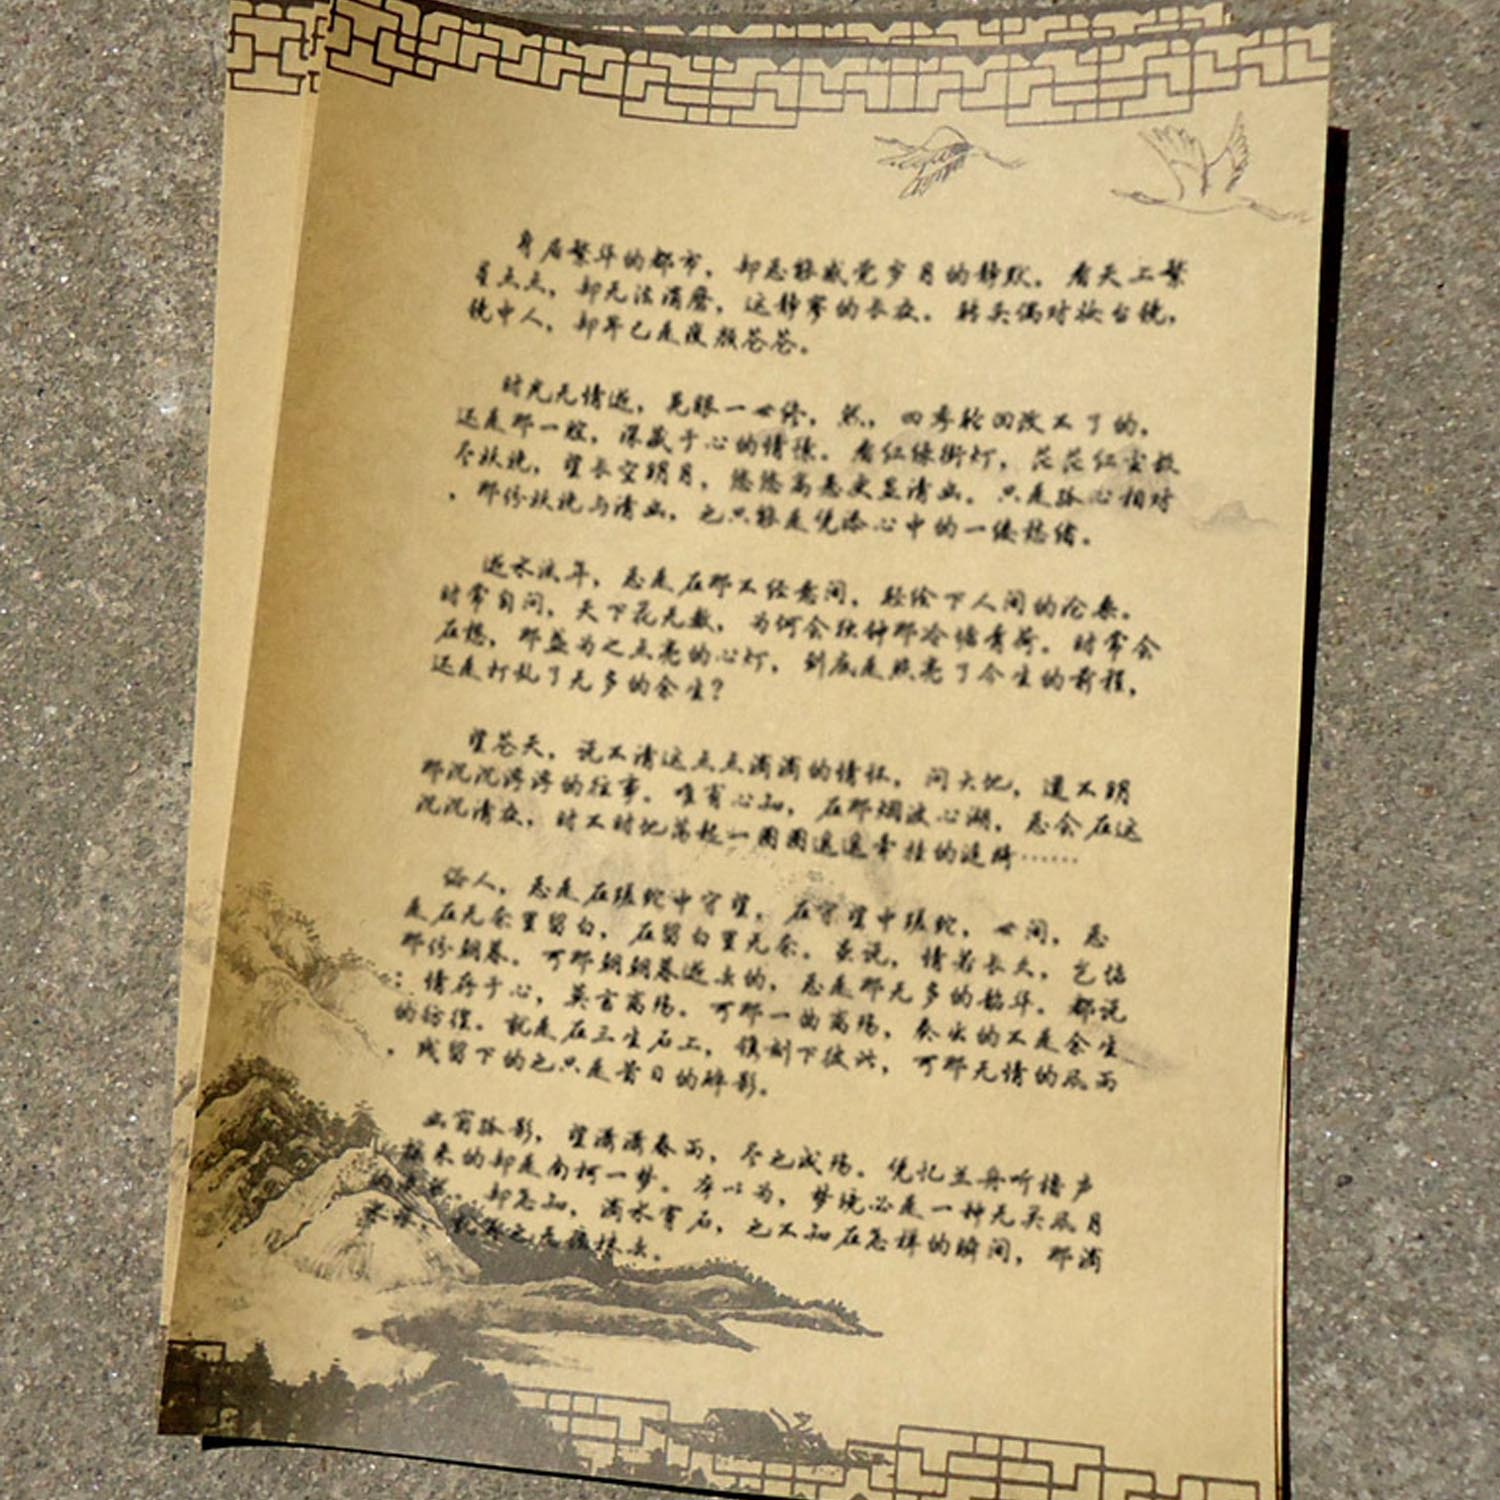 身居繁华的都市，却总能感觉岁月的静默。看天上繁
星点点，却无法消磨，这静寥的长夜。转头偶对妆台镜，
镜中人，却早已是疲颜苍苍。
时光无情逝，晃眼一世终，然，四季轮回改不了的，
还是那一腔，深藏于心的情愫。看红绿街灯，茫茫红尘数
尽妖娆，望长空明月，悠悠高悬更显清幽。只是孤心相对
，那份妖娆与清幽，也只能是凭添心中的一缕愁绪。
逝水流年，总是在那不经意间，轻绘下人间的沧桑。
时常自问，天下花无数，为何会独钟那冷塘青荷。时常会
在想，那盏为之点亮的心灯，到底是照亮了今生的前程，
还是打乱了无多的余生？
望苍天，说不清这点点滴滴的情怀，问大地，道不明
那沉沉浮浮的往事。唯有心知，在那烟波心湖，总会在这
沉沉清夜，时不时地荡起一圈圈遥遥牵挂的涟漪……
俗人，总是在蹉跎中守望，在守望中蹉跎，世间，总
是在无奈里留白，在留白里无奈。虽说，情若长久，岂惦
那份朝暮。可那朝朝暮逝去的，总是那无多的韶华。都说
：情存于心，莫言离殇。可那一曲离殇，奏出的不是余生
的彷徨。就是在三生石上，镌刻下彼此，可那无情的风雨
，残留下的也只是昔日的碎影。
幽窗孤影，望潇潇春雨，尽已成殇。凭忆兰舟听橹声
，换来的却是南柯一梦。本以为，梦境必是一种无关风月
却怎知，滴水穿石，也不知在怎样的瞬间，那滴